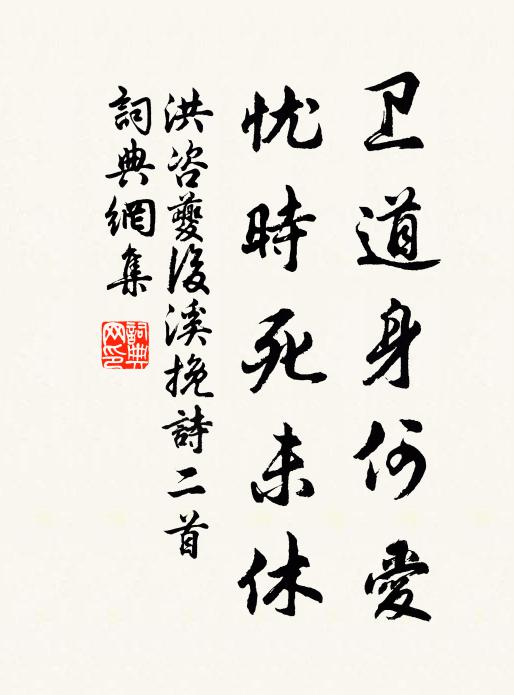 卫道身何愛
忧時死未休
洪咨夔後溪挽詩二首
詞典網集
詞典网印